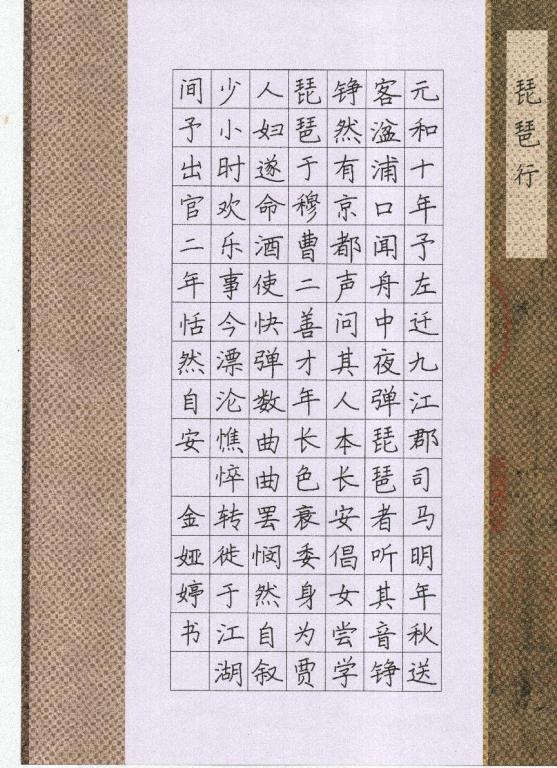 琵琶行
元和十年予左迁九江郡司马明年秋送
客湓浦口闻舟中夜弹琵琶者听其音铮
铮然有京都声问其人本长安倡女尝学
琵琶于穆曹二善才年长色衰委身为贾
人妇遂命酒使快弹数曲曲罢悯然自叙
少小时欢乐事今漂沦憔悴转徙于江湖
间予出官二年恬然自安 金娅婷书